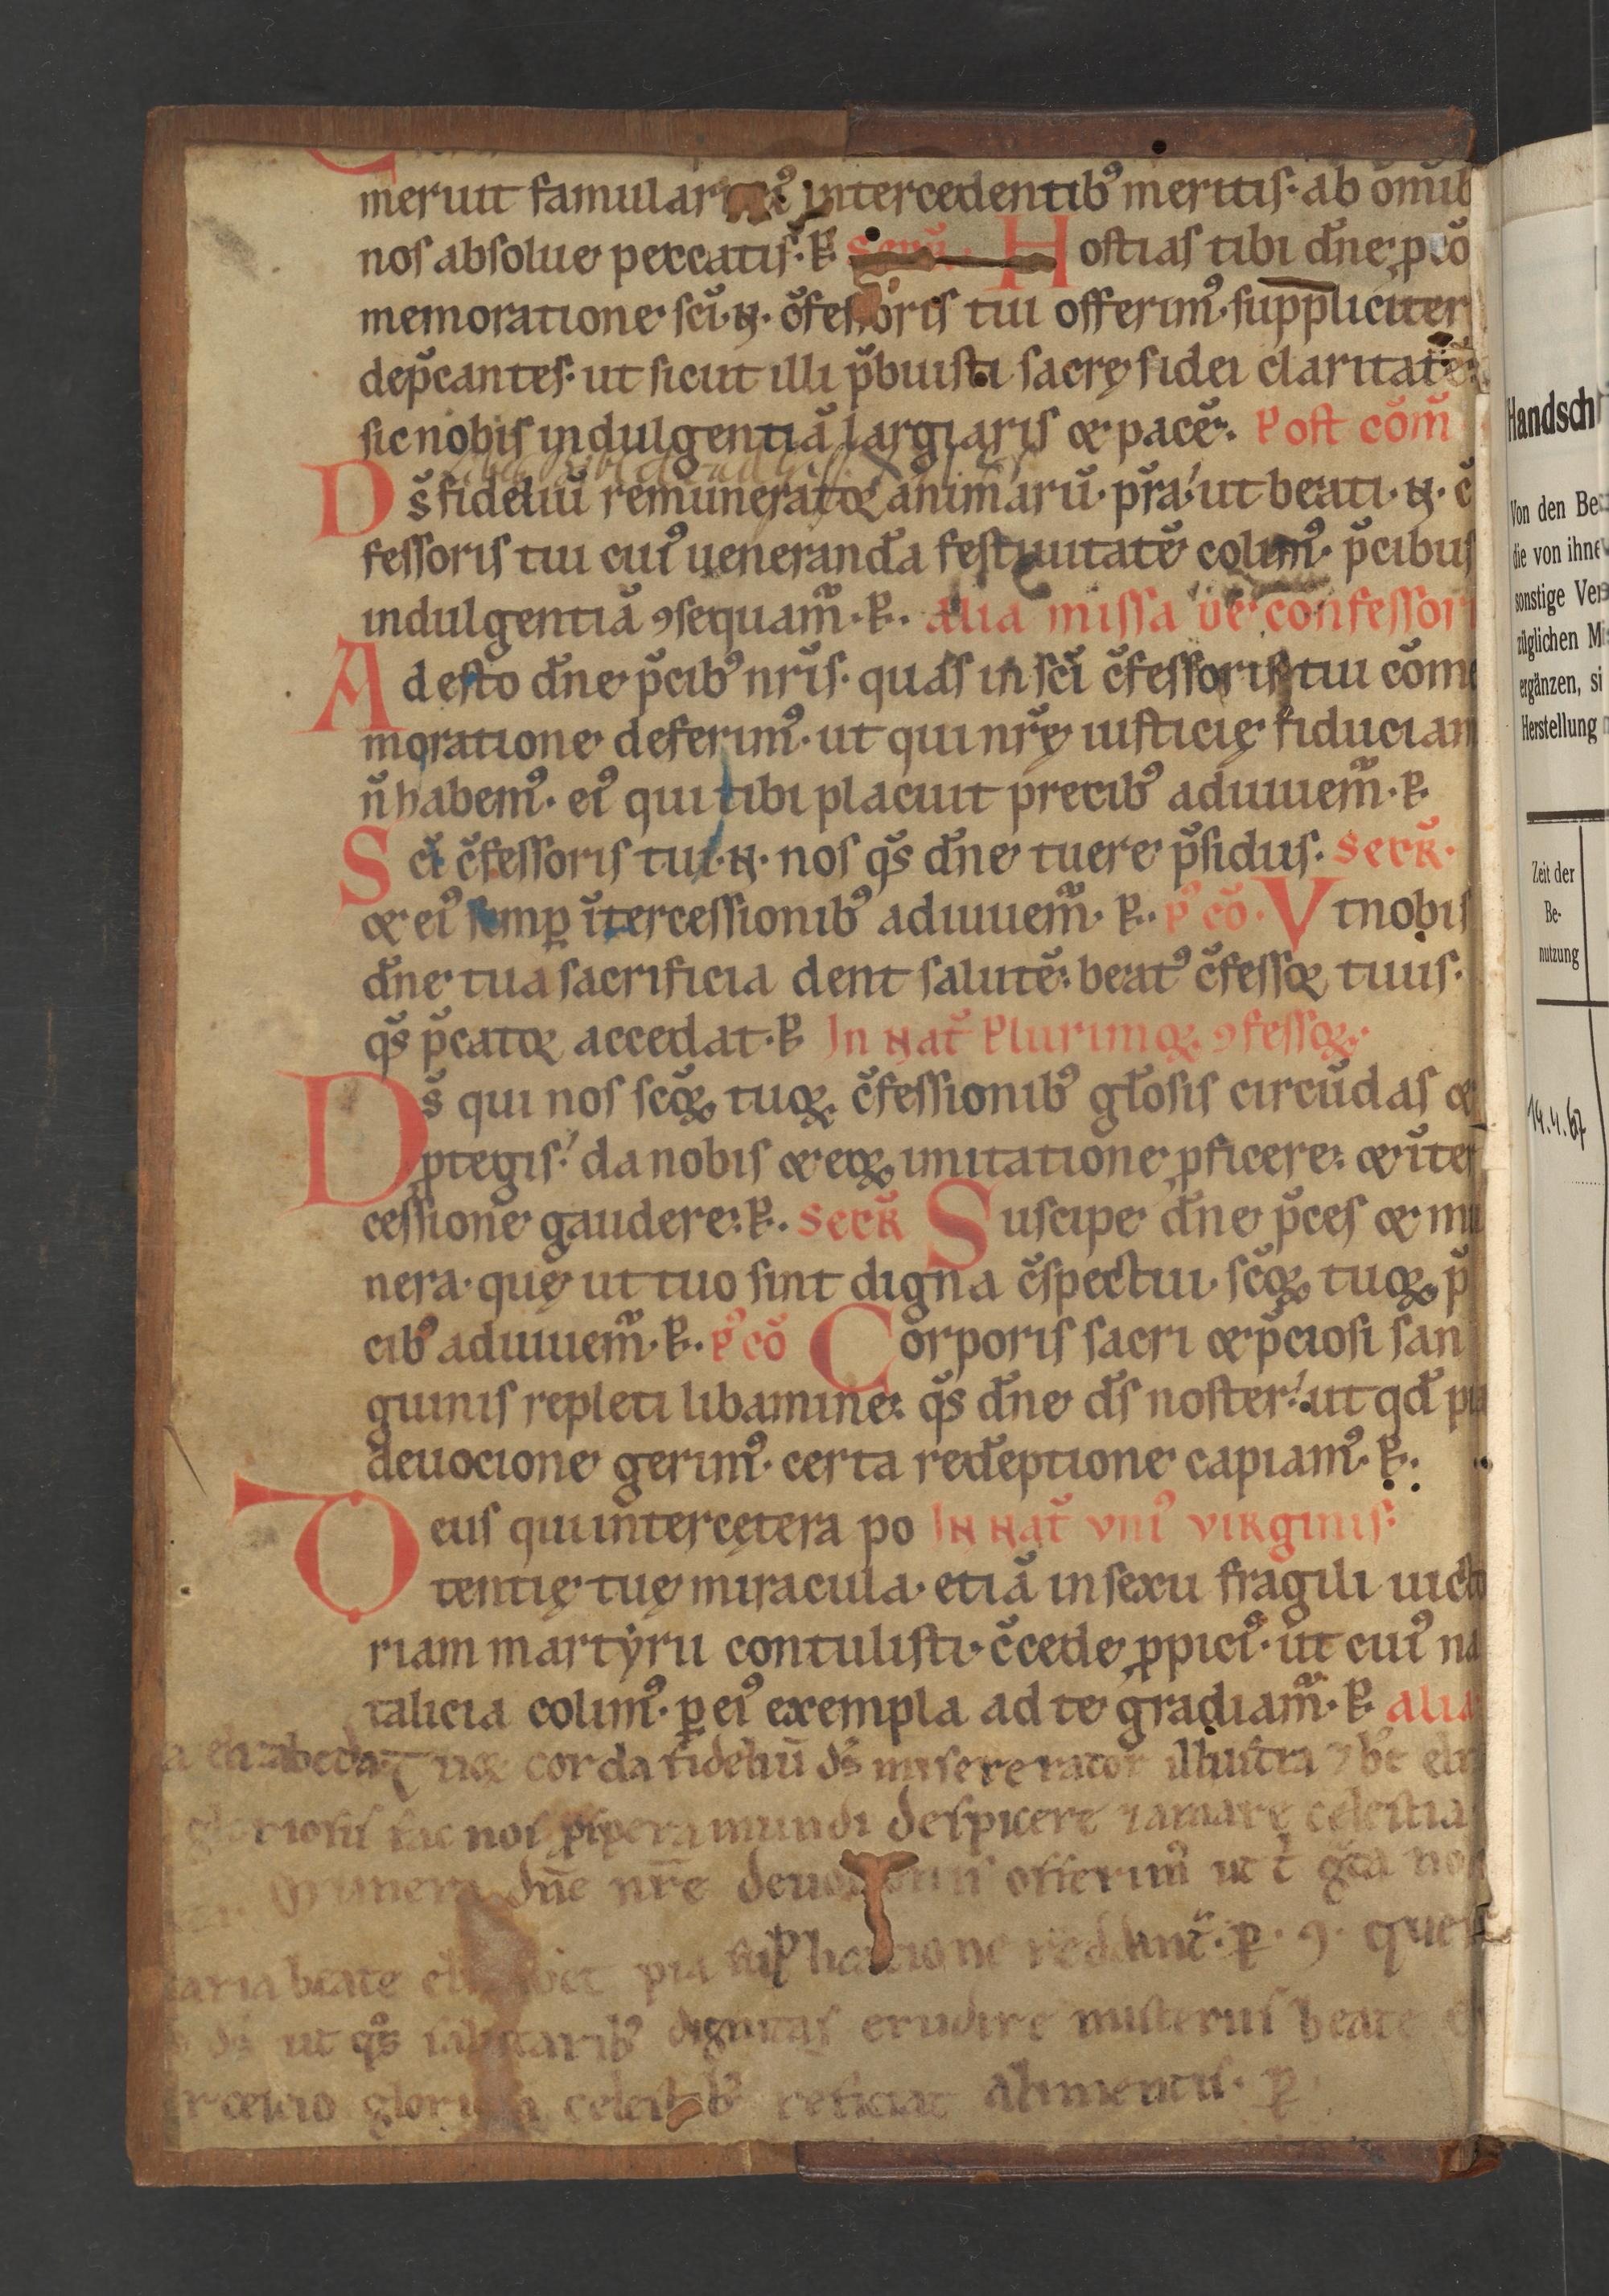 meruit famulari intercedentibꝰ meritis· ab om̅ib
nos absolue peccatis·ꝑ secr̅· Hostias tibi dn̅e ꝓ co̅
memoratione sci̅·N· c̅fessoris tui offerimꝰ·suppliciter
dep̅cantes· ut sicut illi p̅buisti sacrę fidei claritate̅·
sic nobis indulgentia̅ largiaris & pace̅· Post com̅
Ds̅ fideliu̅ remuneratoꝛ animaru̅· pr̅a· ut beati·N·c̅
fessoris tui cuiꝰ ueneranda̅ festiuitate̅ colimꝰ· p̅cibus
indulgentia̅ ꝯsequam̅·ꝑ· alia missa de confessori
Adesto dn̅e p̅cibꝰ nr̅is· quas in sci̅ c̅fessoris tui co̅me
moratione deferimꝰ· ut qui nr̅ę iusticię fiduciam
n̅ habemꝰ· eiꝰ qui tibi placuit precibꝰ adiuuem̅·ꝑ·
Sci̅ c̅fessoris tui·N· nos qs̅ dn̅e tuere p̅sidus· secr̅·
& eiꝰ semꝑ i̅tercessionibꝰ adiuuem̅· ꝑ· pꝰ co̅· Vt nobis
dn̅e tua sacrificia dent salute̅· beatꝰ c̅fessoꝛ tuus·
qs̅ p̅catoꝛ accedat·ꝑ In Nat̅ Plurimoꝝ ꝯfessoꝝ·
Ds̅ qui nos sc̅oꝝ tuoꝝ c̅fessionibꝰ gl̅osis circu̅das &
ꝓtegis· da nobis & eoꝝ imitatione ꝓficere· & i̅ter
cessione gaudere·ꝑ· secr̅ Suscipe dn̅e p̅ces & mu
nera· quę ut tuo sint digna c̅spectui· sc̅oꝝ tuoꝝ p̅
cibꝰ adiuuem̅·ꝑ· pꝰ co̅ Corporis sacri & p̅ciosi san
guinis repleti libamine· qs̅ dn̅e ds̅ noster· ut qd̅ pia
deuocione gerimꝰ· certa rede̅ptione capiamꝰ·ꝑ·
Deus qui inter cętera po In Nat̅ vniꝰ virginis·
tentię tuę miracula· etia̅ in sexu fragili uicto
riam martyrii contulisti· c̅cede ꝓpiciꝰ· ut cuiꝰ na
talicia colimꝰ· ꝑ eiꝰ exempla ad te gradiam̅·ꝑ alia
Tuoꝝ corda fideliu̅ ds̅ miserator illustra ⁊ bt̅e eli
gloriosis fac nos ꝓspera mundi despicere ⁊ amare celestia
Munera dn̅e nr̅e offerimꝰ ut
beate pia reddant̅· ꝑ· ꝯ·
ds̅ ut qs̅ salutaribꝰ dignitas erudire misteriis beate
reficiat alimentis· ꝑ
Handsch
Von den Be
die von ihne
sonstige Ver
züglichen M
ergänzen, si
Herstellung
Zeit der
Be-
nutzung
19.4.67